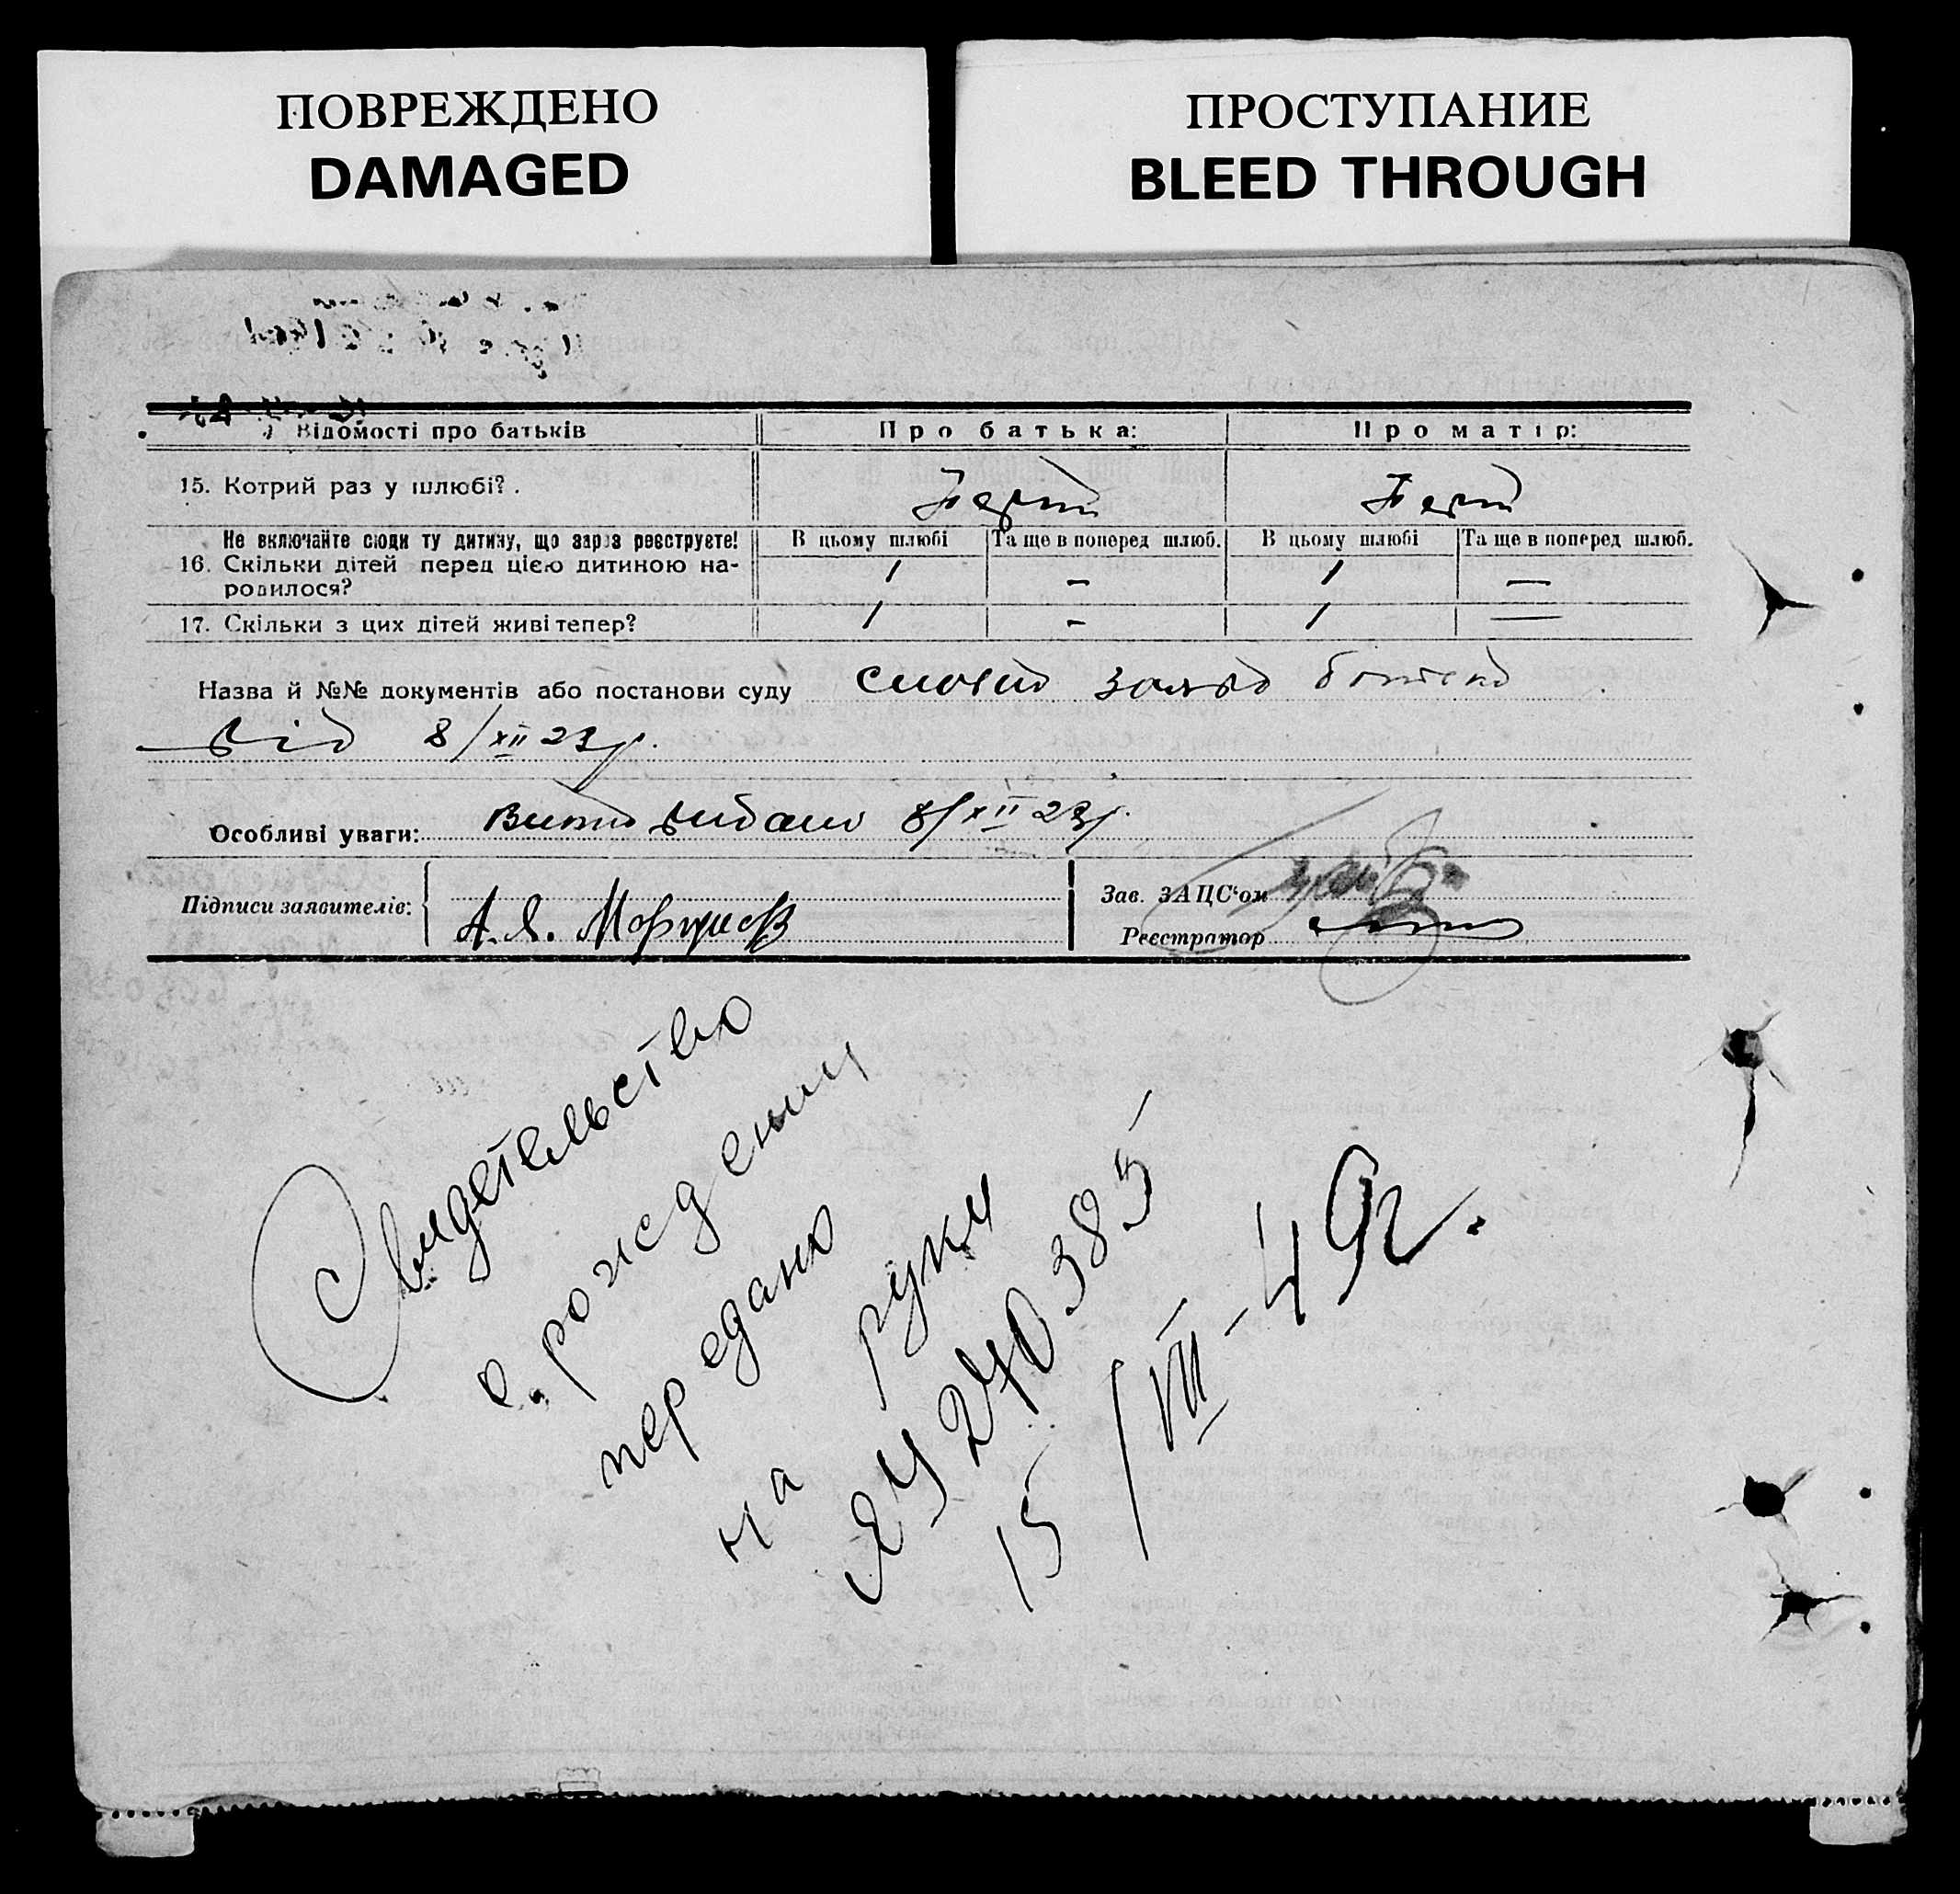 ПОВРЕЖДЕНО
DAMAGED
ПРОСТУПАНИЕ
BLEED THROUGH
Відомості про батьків
Про батька:
Про матір:
15. Котрий раз у шлюбі?
Не включайте сюди ту дитину, що зараз реєструєте!
В цьому шлюбі
Та ще в поперед шлюб.
В цьому шлюбі
Та ще в поперед шлюб.
16. Скільки дітей перед цією дитиною на-
родилося?
1
-
1
—
17. Скільки з цих дітей живі тепер?
1
-
1
—
Назва й №№ документів або постанови суду
від 8/XII 23р.
Особливі уваги: видано 8/XII 23р.
Підписи заявителів:
А. Я.
Зав. ЗАЦС'ом
Реєстратор
Свидетельство
о рождении
передано
на руки
ЯУ 270385
15/VIII-49г.